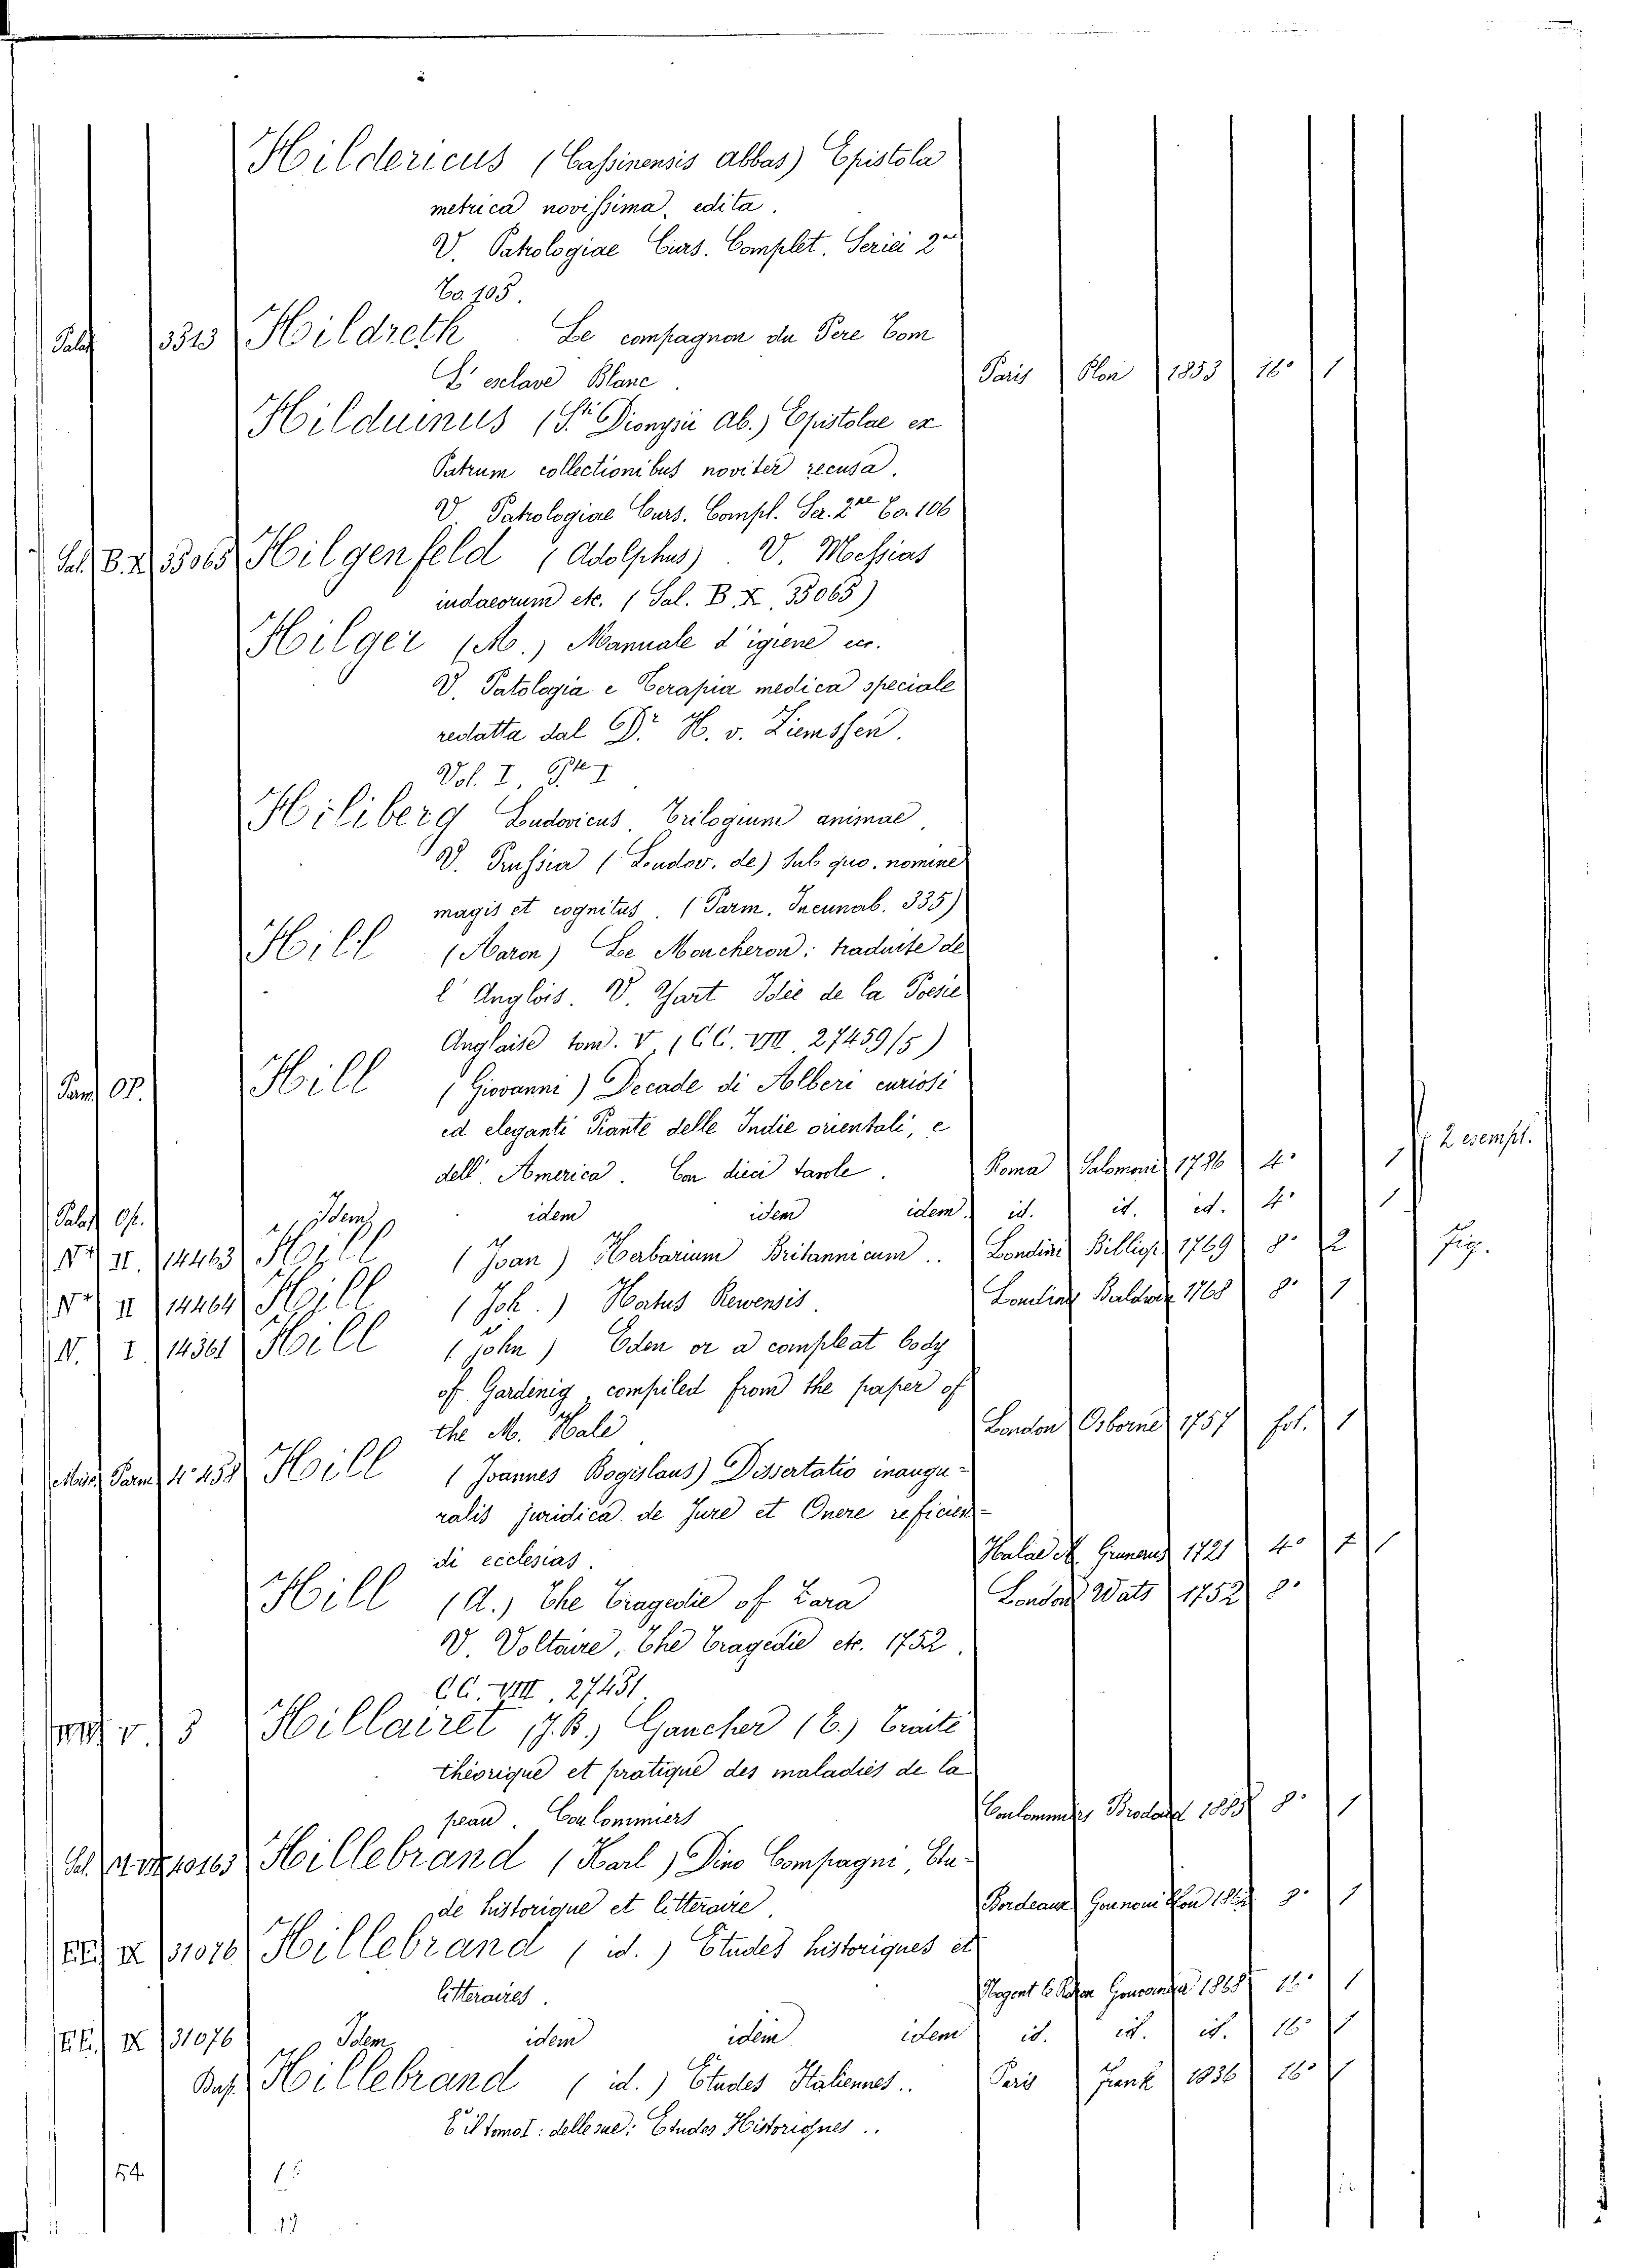 Hildericus (Cassinensis abbas) Epistola
metrica novissima, edita.
V. Patrologiae Curs. Complet. Seriei 2ae
To. 105.
Palat 3313 Hildreth Le compagnon du Pere Tom
L'esclave Blanc. Paris Plon 1853 16° 1
Hilduinus (Sti Dionysii Ab.) Epistolae ex
Patrum collectionibus noviter recusa.
V. Patrologiae Curs. Compl. Ser. 2ae To. 106
Sal. B. X. 35065 Hilgenfeld (Adolphus). V. Messias
iudaeorum etc. (Sal. B. X. 35065)
Hilger (M.) Manuale d'igiene ecc.
V. Patologia e Terapia medica speciale
redatta dal Dr. H. v. Ziemssen.
Vol. I, Pte I
Hiliberg Ludovicus, Trilogium animae,
V. Prussia (Ludov. de) sub quo nomine
magis et cognitus. (Parm. Incunab. 335)
Hill (Aaron) Le Moucheron: traduite de
l'Anglois. V. Yart Idée de la Poesie
Anglaise tom. V, (CC. VIII. 27459/5)
Parm OP. Hill (Giovanni) Decade di Alberi curiosi
ed eleganti Piante delle Indie orientali, e
dell'America. Con dieci tavole. Roma Salomoni 1786 4° 1 2 esempl.
Palat Op. Idem idem idem idem id. id. id. 4° 1
Nri II. 14463 Hill (Joan) Herbarium Britannicum.. Londini Bibliop. 1769 8° 2 fig.
Nri II 14464 Hill (Joh.) Hortus Kewensis. Londini Baldwin 1768 8° 1
N. I. 14361 Hill (John) Eden or a compleat body
of Gardinig, compiled from the paper of
the M. Hale London Osborne 1757 fol. 1
Misc. Parm 4° 458 Hill (Joannes Bogislaus) Dissertatio inaugu-
ralis juridica de Jure et Onere reficien-
di ecclesias. Halae M. Grunaud 1721 4° 1 1
Hill (A.) The Tragedie of Zara London Wats 1752 8°
V. Voltaire, The Tragedie etc. 1752.
CC. VIII, 27431
V. 3 Hillairet (J. B.) Gaucher (E.) Traité
théorique et pratique des maladies de la
peau, Coulommiers Coulommiers Brodard 1885 8° 1
Hillebrand (Karl) Dino Compagni, Etu-
de historique et litteraire. Bordeaux Gounouilhou 1862 8° 1
X 31076 Hillebrand (id.) Etudes historiques et
litteraires. Nogent 1868 12° 1
X 31076 Idem idem idem idem id. id. id. 16° 1
Hillebrand (id.) Etudes Italiennes.. Paris Frank 16° 1
E il tomo I: delle sue: Etudes Historiques..
54